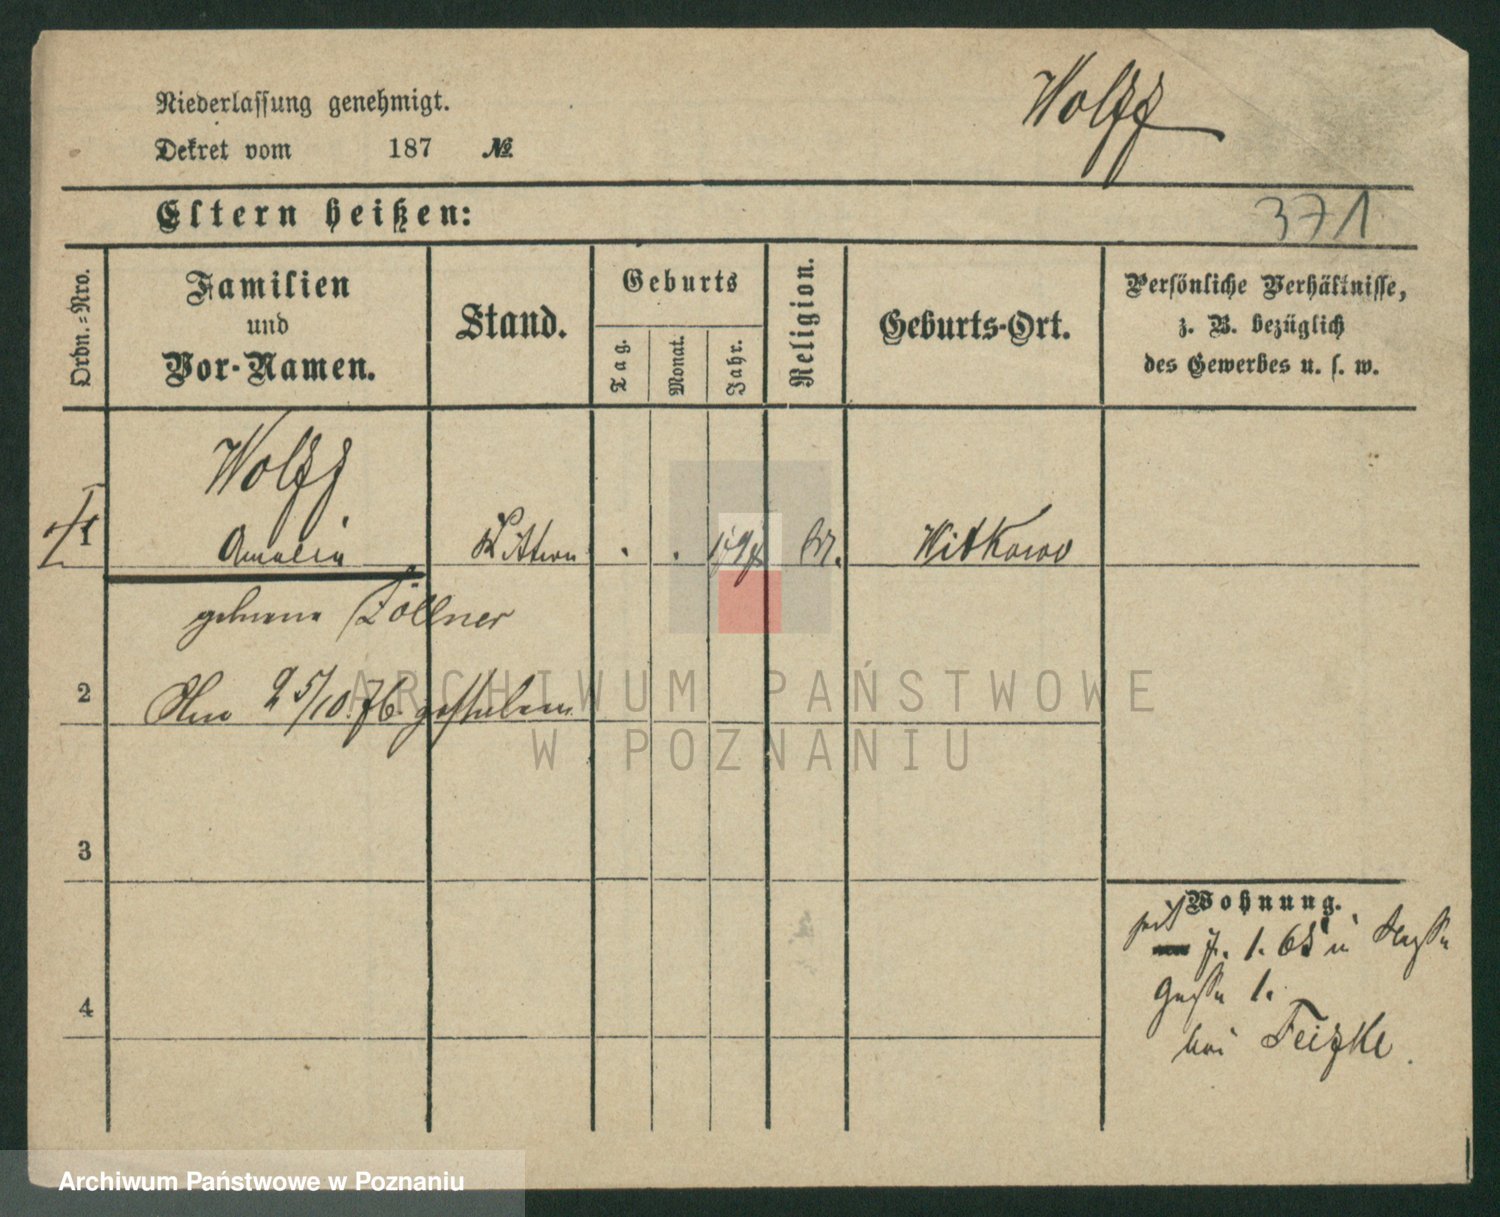 Niederlassung genehmigt.
Wolff
Dekret vom 187 №
Eltern heißen:
371
Ordn.=Nro.
Familien
und
Vor-Namen.
Stand.
Geburts
Tag.
Monat.
Jahr.
Religion.
Geburts-Ort.
Persönliche Verhältnisse,
z. B. bezüglich
des Gewerbes u. s. w.
Wolff
1 Amalia Wittwe Witkowo
geborene Zöllner
2
25/10.76. gestorben
3
4
Wohnung.
seit 7. 1. 65
1.
bei Feizke
ARCHIWUM PAŃSTWOWE
W POZNANIU
Archiwum Państwowe w Poznaniu